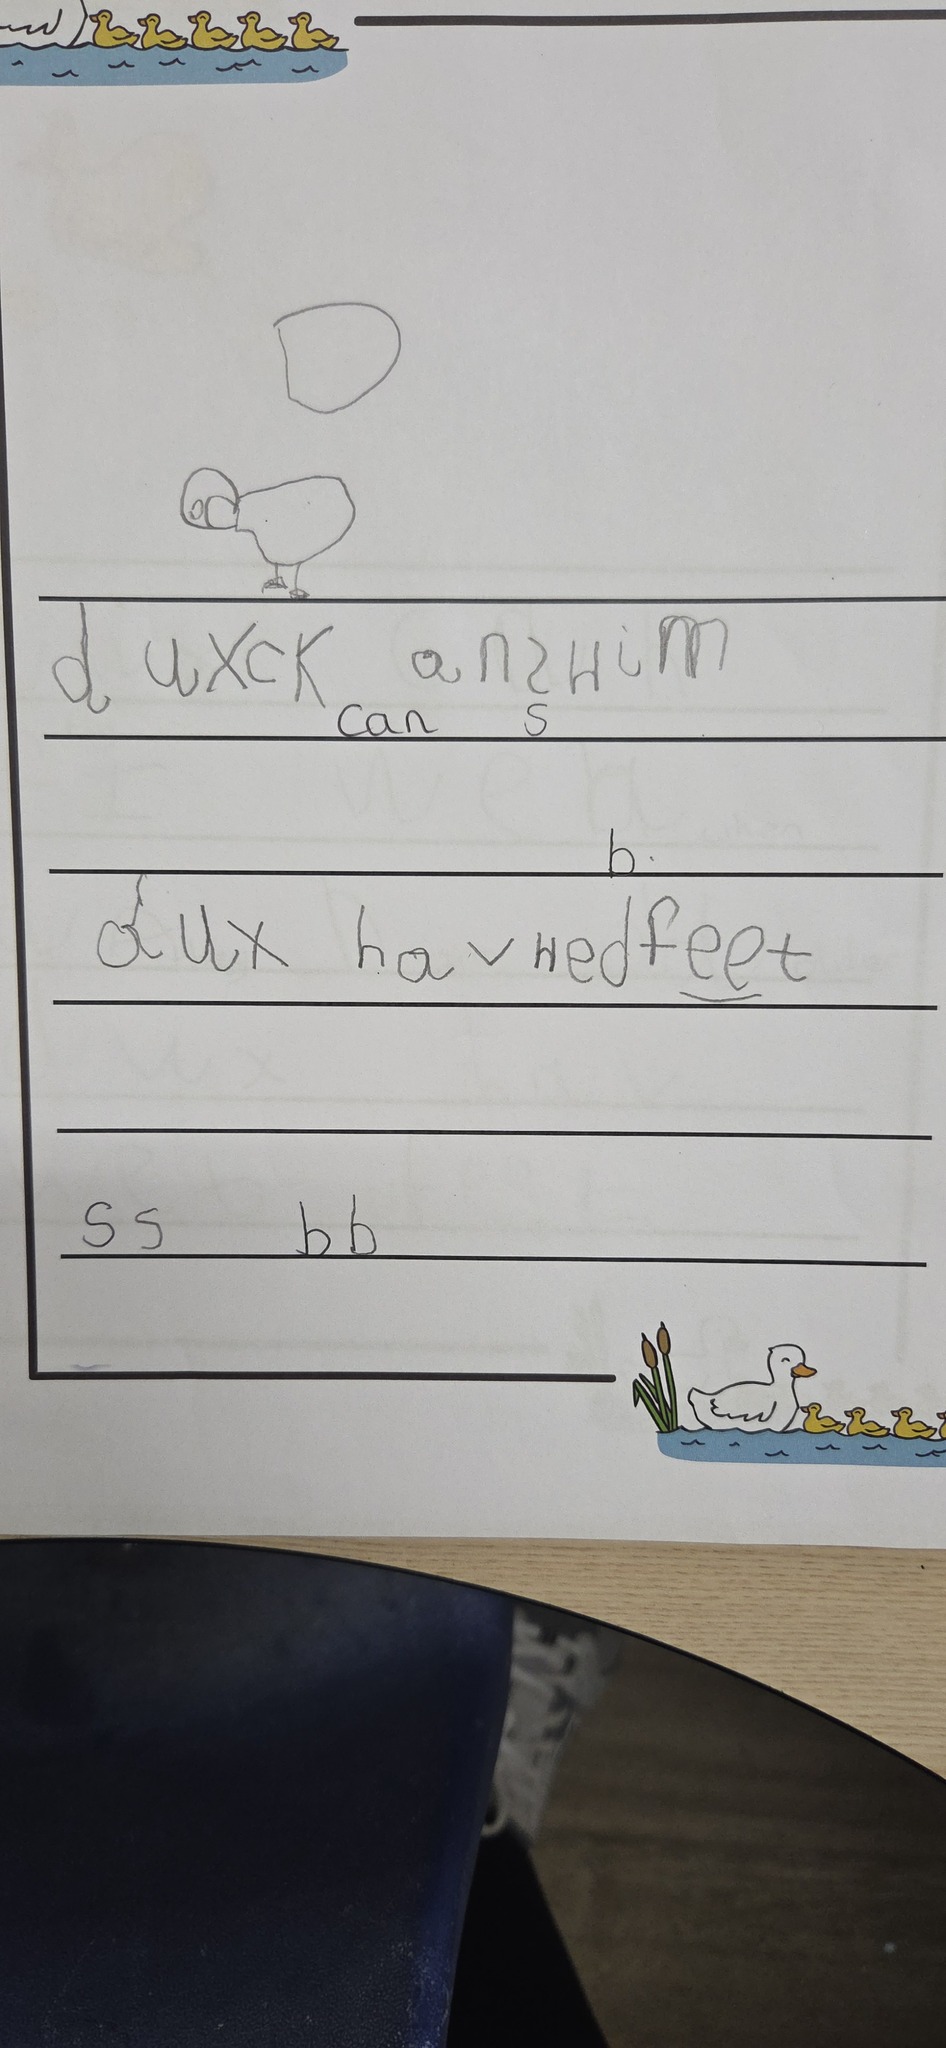 d uxck answim
can s
b.
dux havwedfeet
ss bb